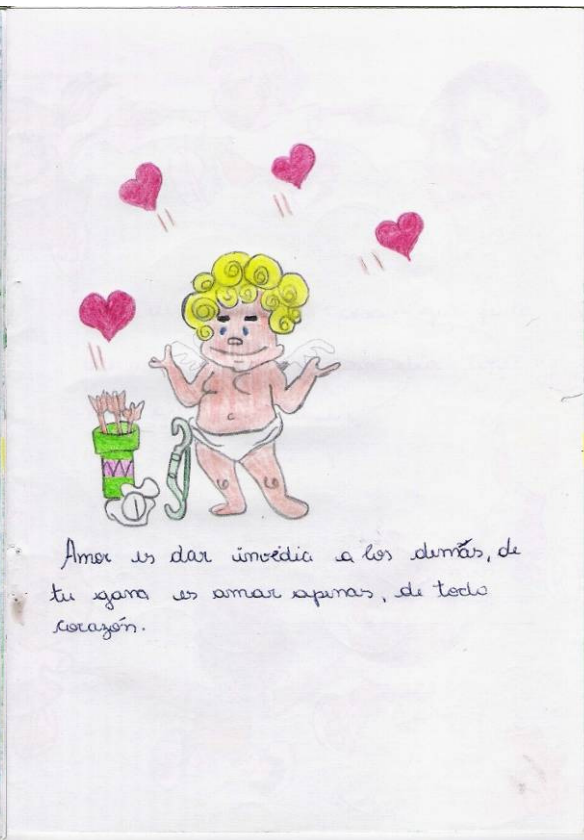 Amor es dar invédia a los demás, de
tu gana es amar apenas, de todo
corazón.